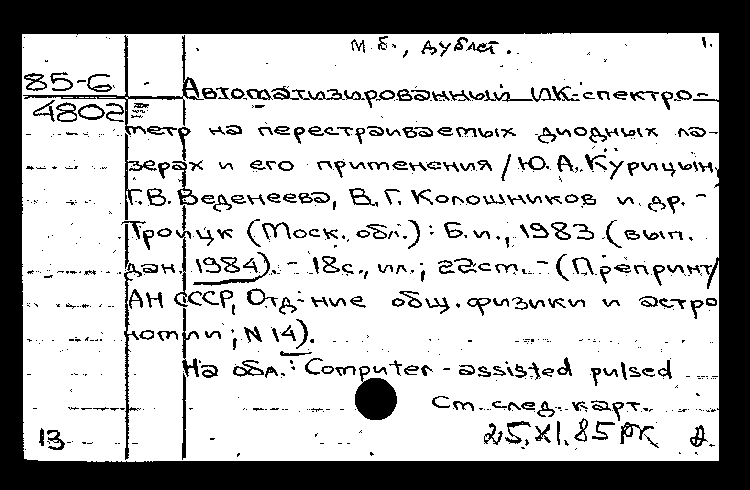 м.б., дублет. 1.
85-6
4802
Автоматизированный ИК-спектро-
метр на перестраиваемых диодных ла-
зерах и его применения / Ю.А. Курицын,
Г.В. Веденеева, В.Г. Колошников и др. -
Троицк (Моск. обл.): Б.и., 1983 (вып.
дан. 1984). - 18с., ил.; 22см. - (Препринт/
АН СССР, Отд-ние общ. физики и астро
номии; N 14).
На обл.: Computer-assisted pulsed
См. след. карт.
13 25.XI.85 РК